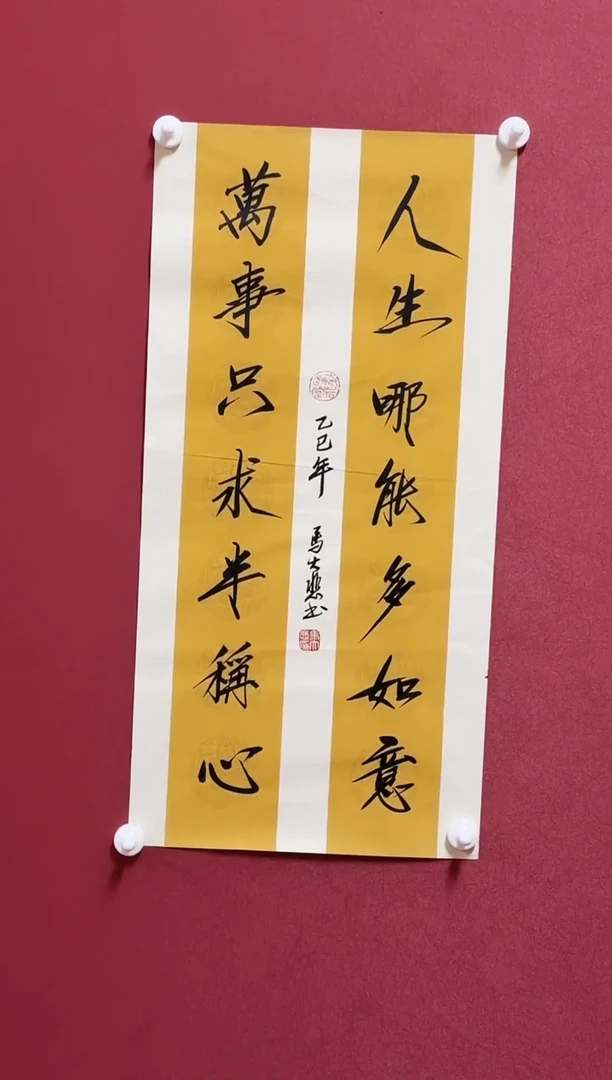 人生哪能多如意
萬事只求半稱心
乙巳年 馬大悲书